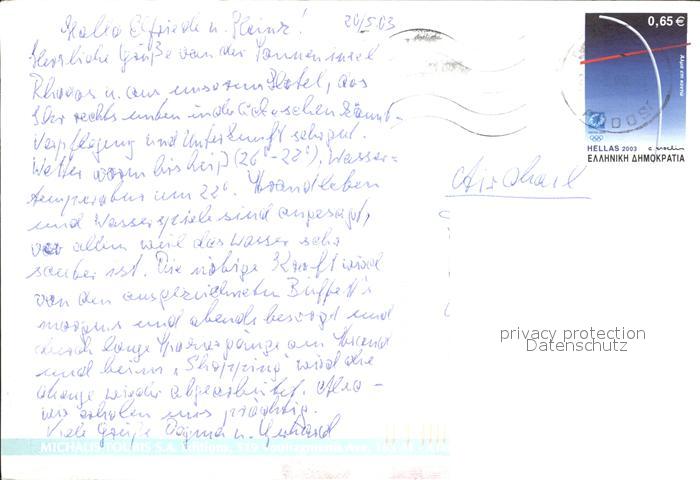 Hallo Elfriede u. Heinz! 20/5.03
Herzliche Grüße von der Sonneninsel
Rhodos u. aus unserem Hotel, das
Ihr rechts unten in der
Verpflegung und Unterkunft sehr gut.
Wetter warm bis heiß (26°-28°), Wasser=
temperatur um 22°. Strandleben
und Wasserspiele sind angesagt,
vor allem weil das Wasser sehr
sauber ist. Die nötige Kraft wird
von den ausgezeichneten Büffett's
morgens und abends besorgt und
durch lange Spaziergänge am Strand
und beim "Shopping" wird die
wieder abgearbeitet. Also –
wir erholen uns prächtig.
Viele Grüße Dagmar u. Gerhard
0,65 €
HELLAS 2003
ΕΛΛΗΝΙΚΗ ΔΗΜΟΚΡΑΤΙΑ
Air Mail
privacy protection
Datenschutz
MICHALIS TOUBIS S.A. Editions, 519